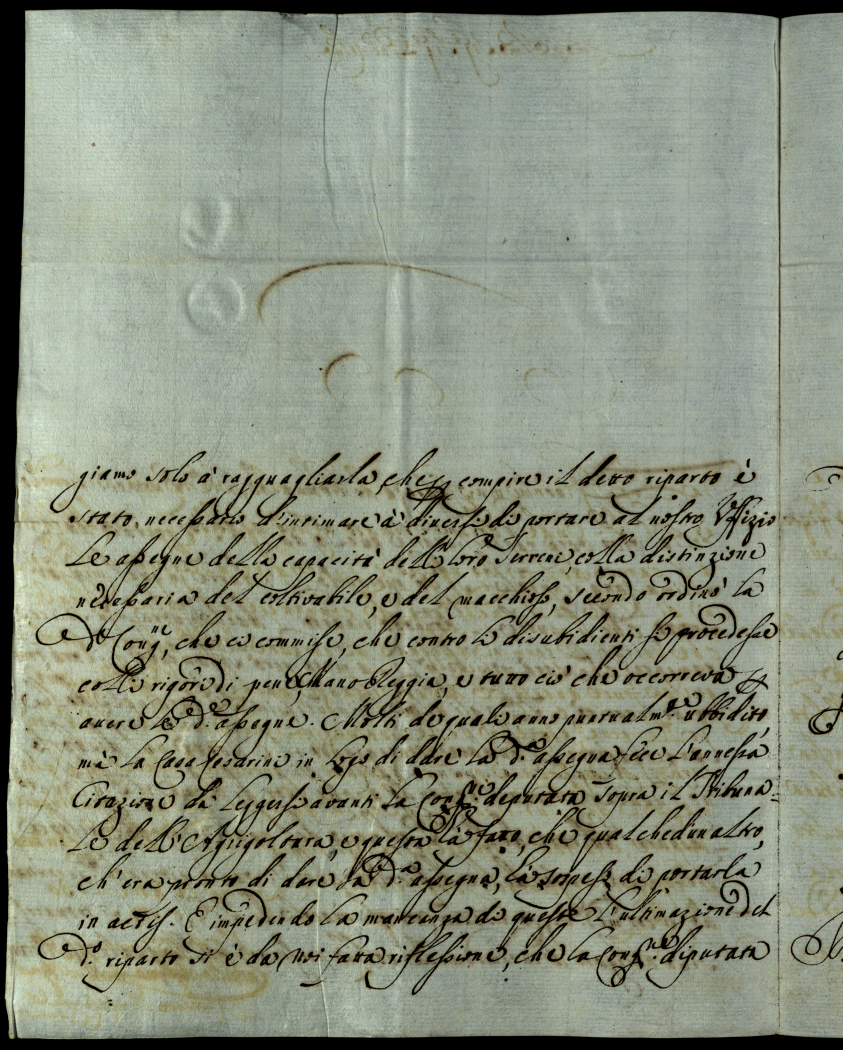 giamo solo à ragguagliarla, che p compire il detto riparto è
stato necessario d'intimare à diversi di portare al nostro Uffizio
Le assegne della capacità delli loro Terreni, colla distinzione
necessaria del coltivabile, e del macchioso, secondo ordinò la
d.ª Cong.ne, che ci commise, che contro li disubidienti si procedesse
colli rigori di pene, Mano Reggia, e tutto ciò che occorreva p
avere le d.e assegne. Molti de quali anno puntualm.te ubbidito,
mà la Casa Cesarini in Logo di dare la d.ª assegna fece L'annessa
Citazione dà Leggersi avanti la Cong.ne deputata sopra il Tribuna=
Le dell'Agrigoltura, e questa hà fatto, che qualchedun altro,
ch'era pronto di dare la d.ª assegna, hà sospeso di portarla
in actis. E impedendo la mancanza di queste L'ultimazione del
d.º riparto si è da Noi fatta riflessione, che la Cong.ne diputata